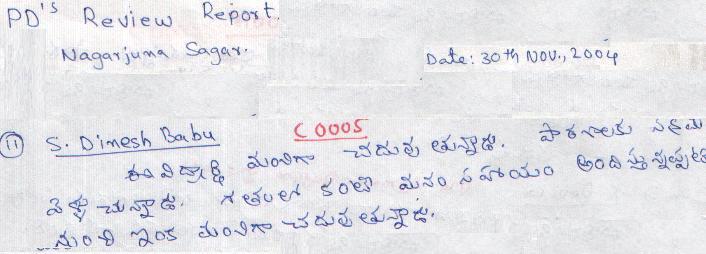 PD's Review Report.
Nagarjuna Sagar.
Date: 30th NOV., 2004
11 S. Dinesh Babu C0005
ఈ విద్యార్థి మంచిగా చదువుతున్నాడు. పాఠశాలకు సక్రమ
వెళ్ళుచున్నాడు. గతంలో కంటె మనం సహాయం అందిస్తున్నప్పటి
నుంచి ఇంక మంచిగా చదువుతున్నాడు.